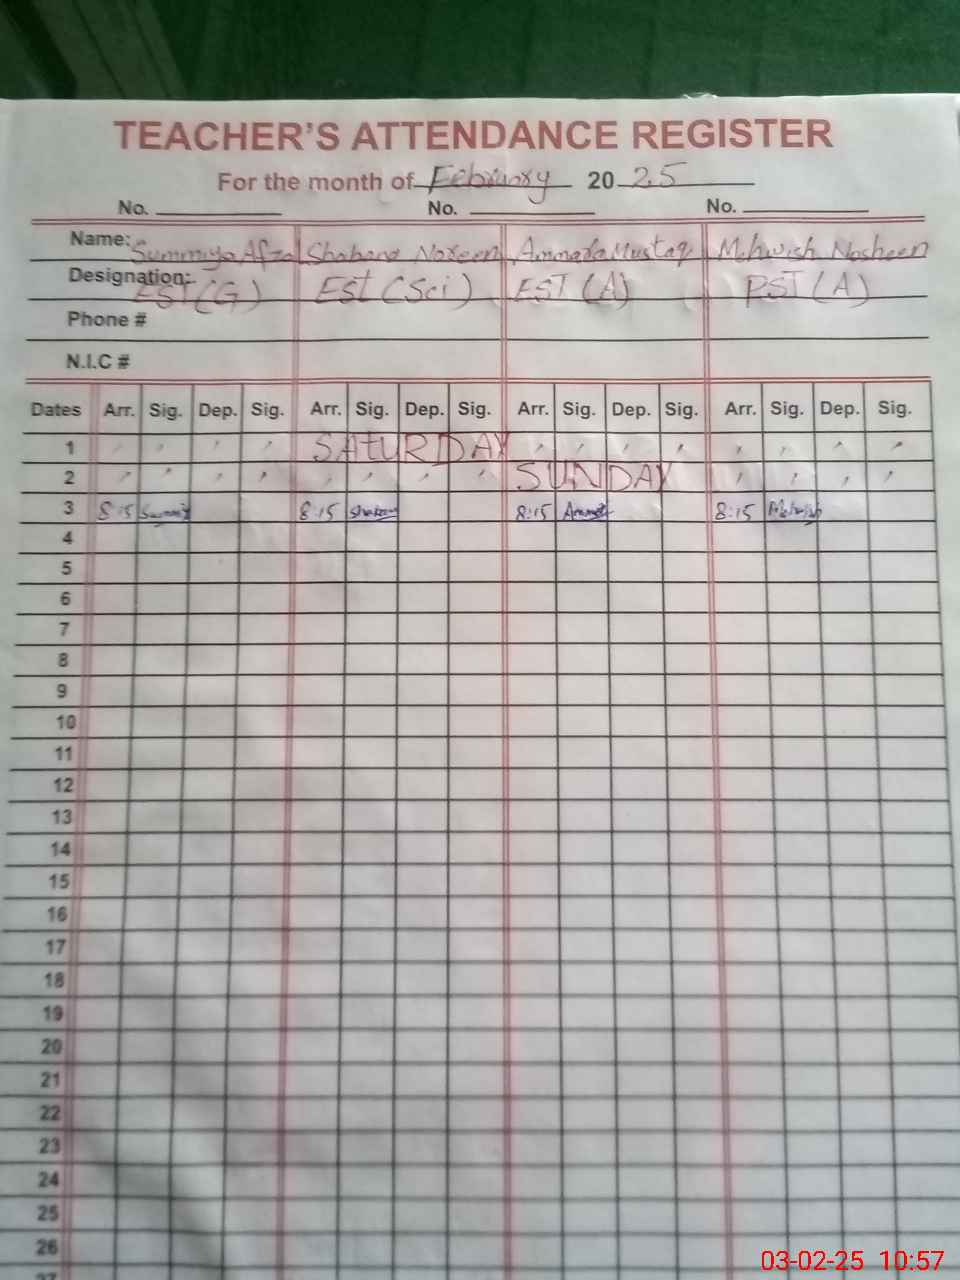 TEACHER'S ATTENDANCE REGISTER
For the month of February 2025
No. No. No.
Name: Summiya Afzal Shabana Noreen Ammara Mustaq Mehwish Nosheen
Designation: EST (G) EST (Sci) EST (A) PST (A)
Phone #
N.I.C #
Dates Arr. Sig. Dep. Sig. Arr. Sig. Dep. Sig. Arr. Sig. Dep. Sig. Arr. Sig. Dep. Sig.
1 SATURDAY
2 SUNDAY
3 8:15 8:15 8:15 8:15
4
5
6
7
8
9
10
11
12
13
14
15
16
17
18
19
20
21
22
23
24
25
26
27
03-02-25 10:57